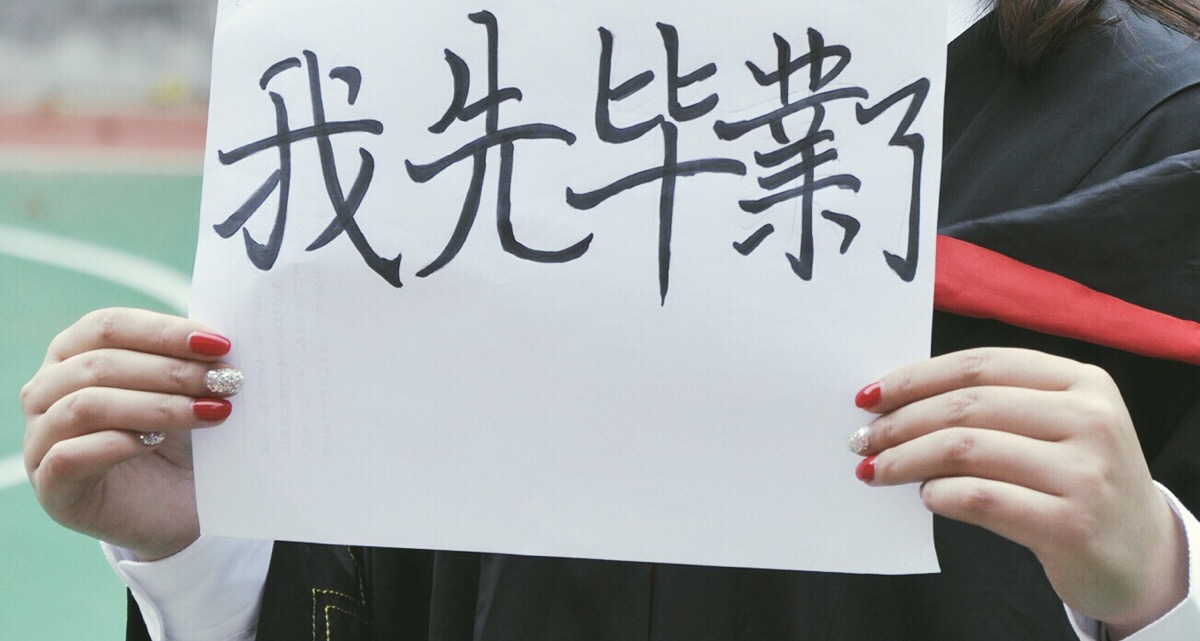 我先毕業了